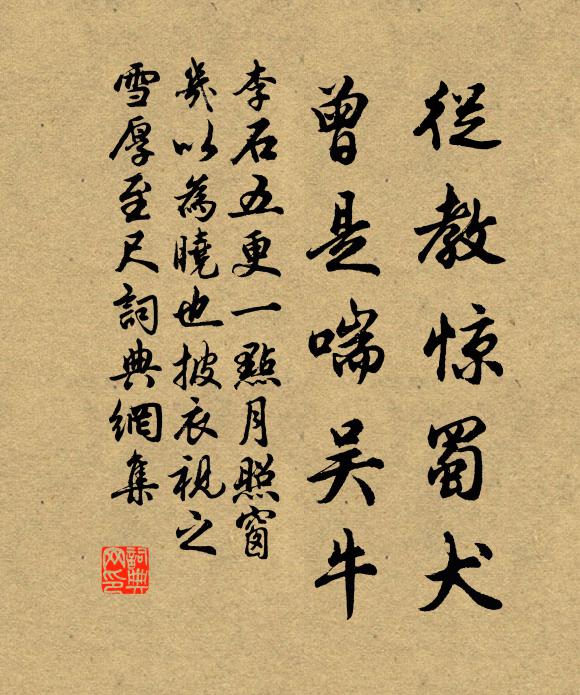 從教惊蜀犬
曾是喘吴牛
李石五更一點月照窗
幾以為曉也披衣視之
雪厚至尺詞典網集
詞典网印